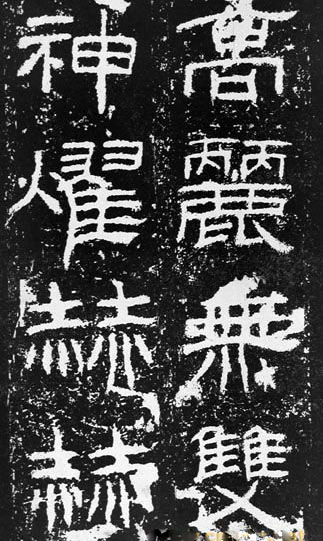 高麗無雙
神燿赫赫